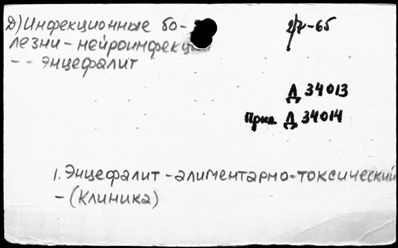 Д) Инфекционные бо-
лезни - нейроинфекц
- - энцефалит
2/V-65
Д 34013
Прил. Д 34014
1. Энцефалит - алиментарно-токсический
- (Клиника)